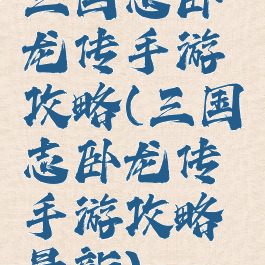 三国志卧
龙传手游
攻略(三国
志卧龙传
手游攻略
最新)